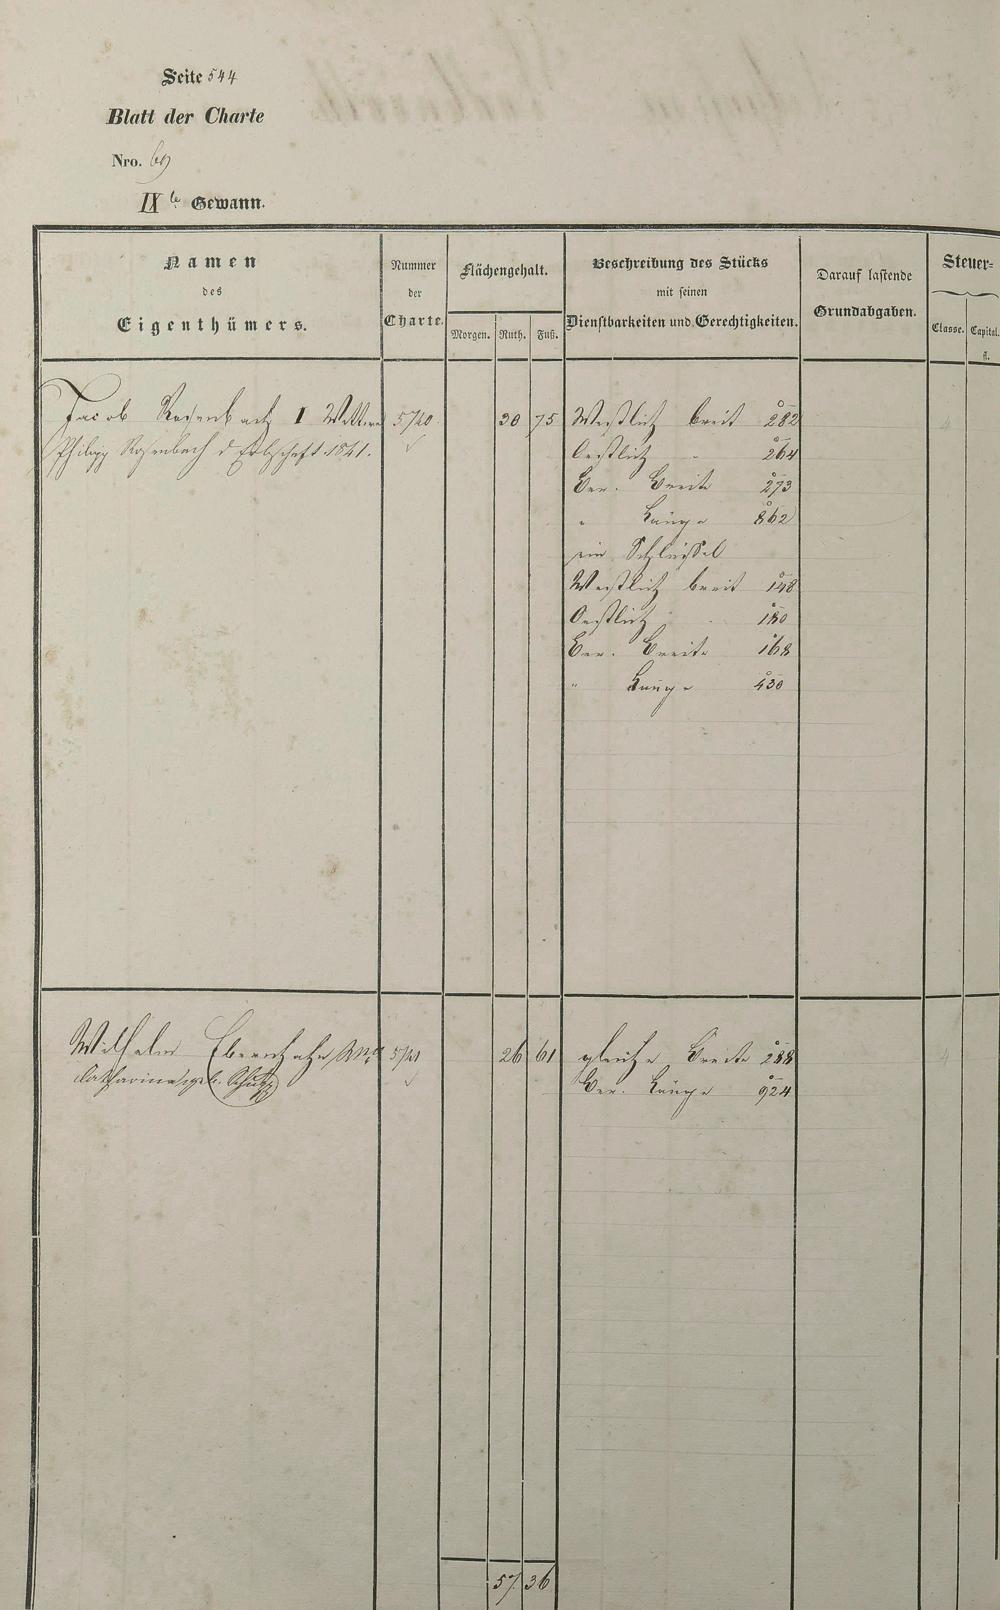 Seite 544
Blatt der Charte
Nro. 69
IXte Gewann.
Namen des Eigenthümers.
Nummer der Charte.
Flächengehalt.
Morgen. Ruth. Fuß.
Beschreibung des Stücks mit seinen Dienstbarkeiten und Gerechtigkeiten.
Darauf lastende Grundabgaben.
Steuer-
Classe. Capital. fl.
Jacob Rosenbach I Wittwe 5740 30 75 Westlich breit 282
Philipp Rosenbach d Erbschaft 1841.
Oestlich " 264
Ver. Breite 273
" Länge 862
ein Schlüssel
Westlich breit 148
Oestlich " 180
Ver. Breite 168
" Länge 430
Wilhelm Ebernhahn 5741 26 61 gleiche Breite 288
Catharina geb. Schütz
Ver. Länge 924
57 36